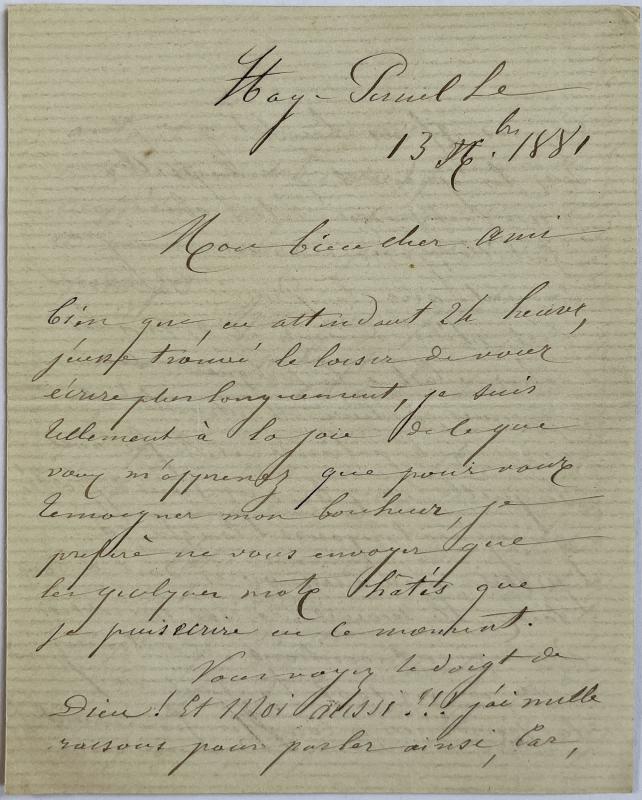 13 9bre. 1881
Mon bien cher ami
bien que, en attendant 24 heures,
j'eusse trouvé le loisir de vous
écrire plus longuement, je suis
tellement à la joie de ce que
vous m'apprenez que pour vous
témoigner mon bonheur, je
préfère ne vous envoyer que
les quelques mots hâtés que
je puis écrire en ce moment.
Vous voyez le doigt de
Dieu! Et Moi aussi!!! j'ai mille
raisons pour parler ainsi, Car,